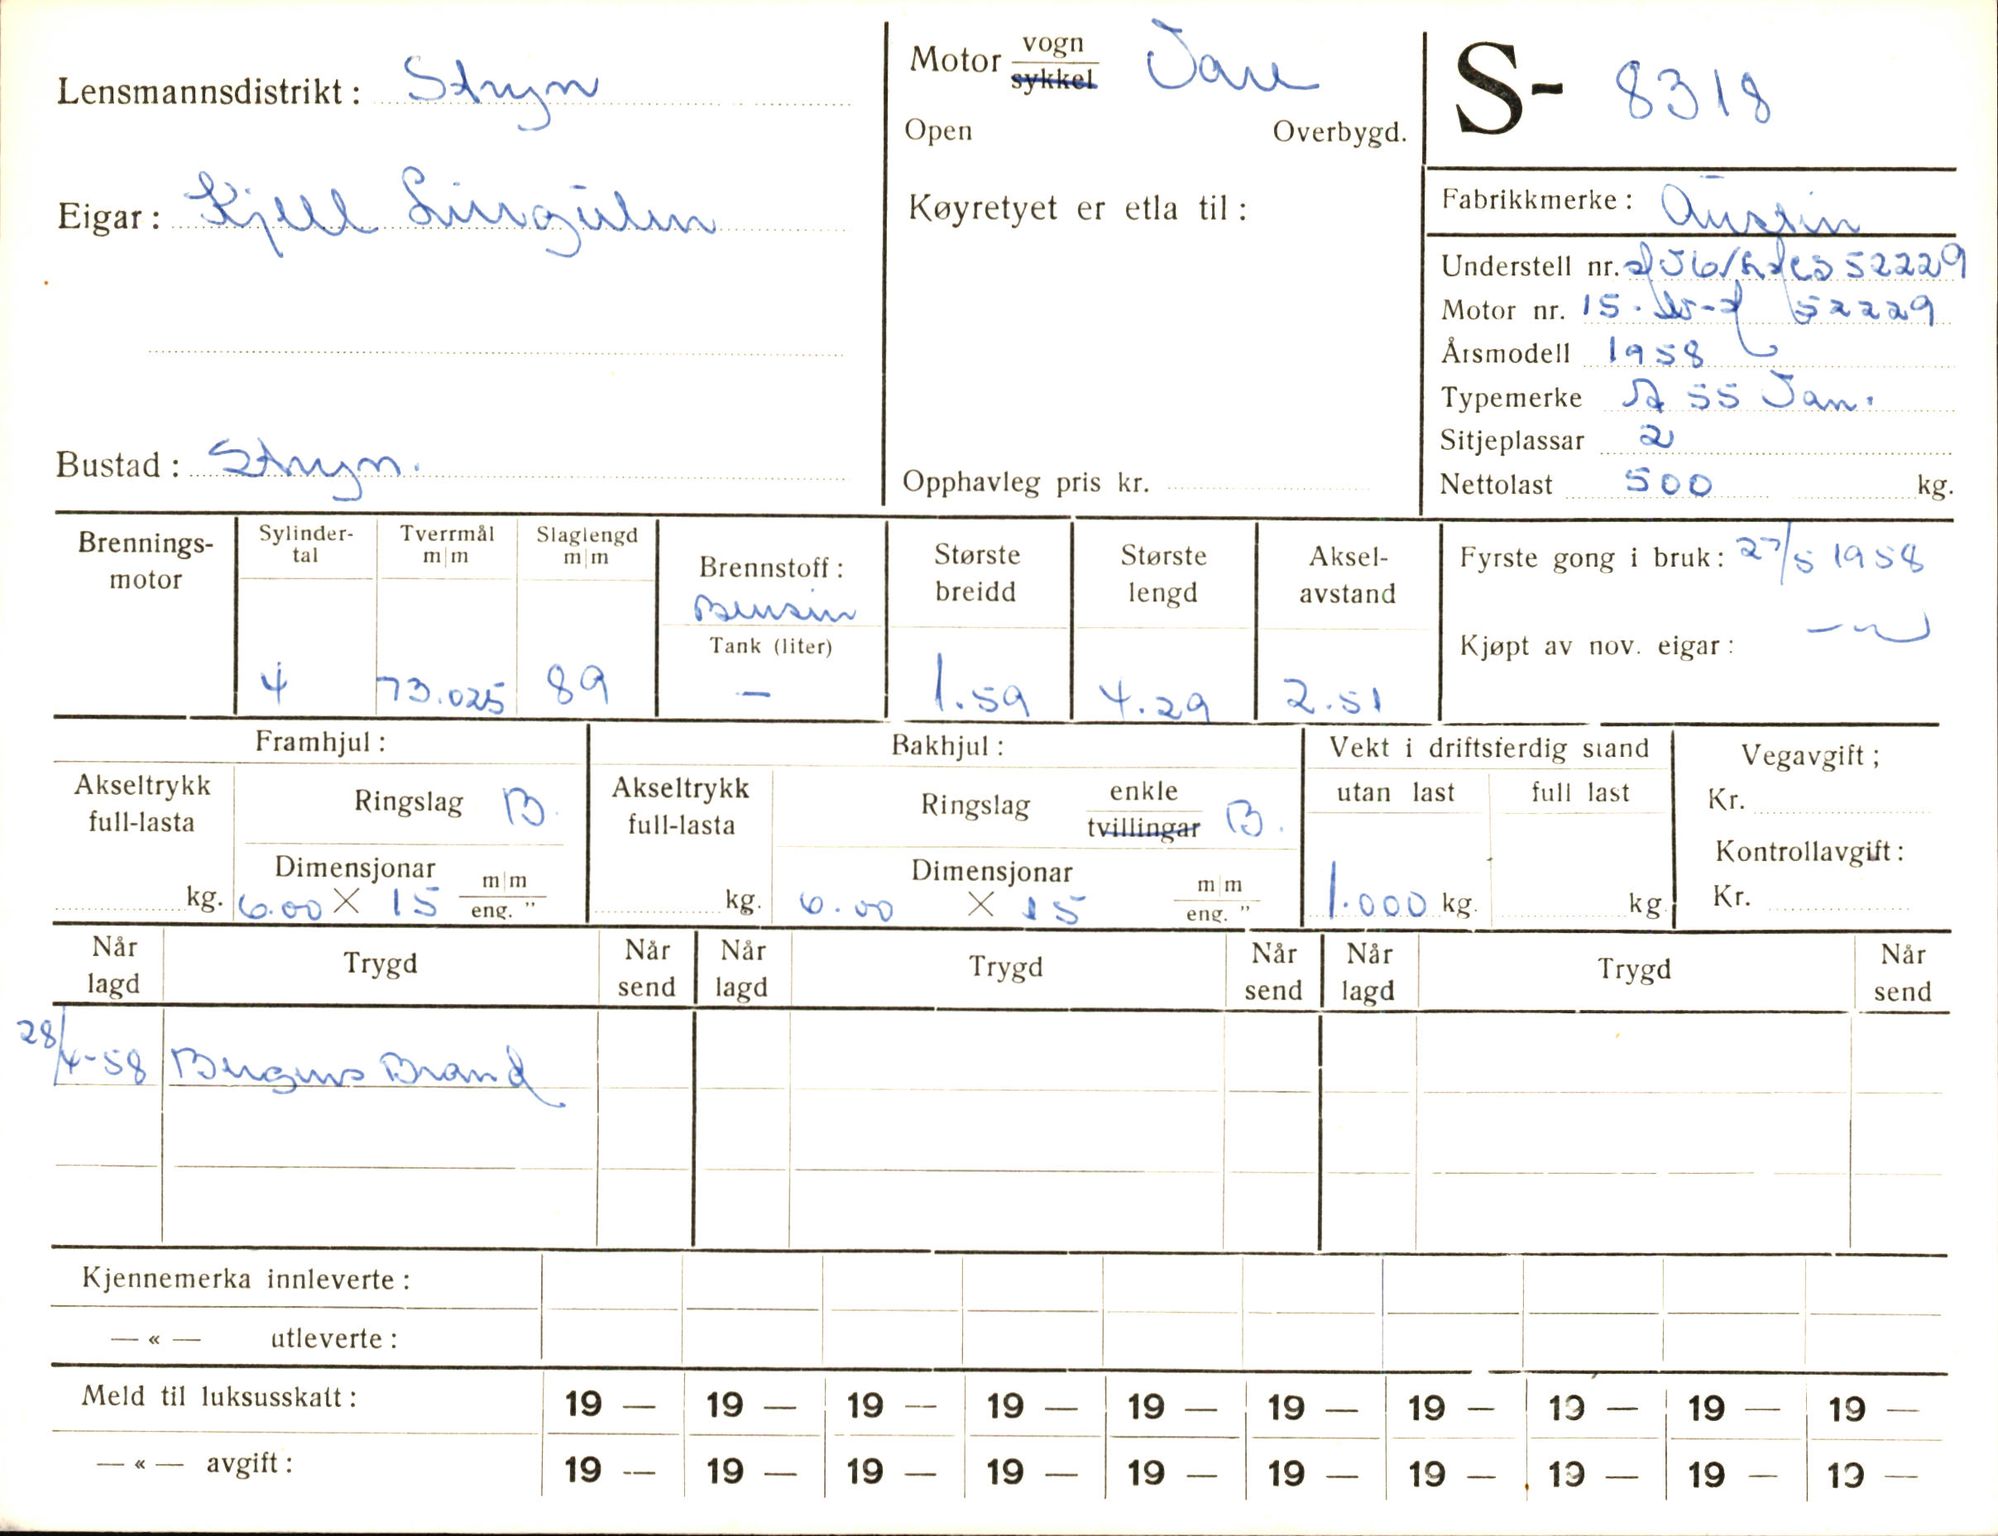 Lensmannsdistrikt: Stryn
Eigar: Kjell
Bustad: Stryn.
Motor vogn
sykkel
Open Overbygd.
Køyretyet er etla til:
Opphavleg pris kr.
S- 8318
Fabrikkmerke: Austin
Understell nr. 52229
Motor nr. 15. 52229
Årsmodell 1958
Typemerke A 55 Van.
Sitjeplassar 2
Nettolast 500 kg.
Brennings-
motor
Sylinder-
tal
4
Tverrmål
m/m
73.025
Slaglengd
m/m
89
Brennstoff:
Bensin
Tank (liter)
—
Største
breidd
1.59
Største
lengd
4.29
Aksel-
avstand
2.51
Fyrste gong i bruk: 27/5 1958
Kjøpt av nov. eigar: —"—
Framhjul:
Akseltrykk
full-lasta
kg.
Ringslag B.
Dimensjonar
6.00 X 15 m/m
eng. "
Bakhjul:
Akseltrykk
full-lasta
kg.
Ringslag enkle
tvillingar B.
Dimensjonar
6.00 X 15 m/m
eng. "
Vekt i driftsferdig stand
utan last full last
1.000 kg. kg
Vegavgift;
Kr.
Kontrollavgift:
Kr.
Når
lagd Trygd Når
send Når
lagd Trygd Når
send Når
lagd Trygd Når
send
28/4-58 Bergens Brand
Kjennemerka innleverte:
— « — utleverte:
Meld til luksusskatt: 19 — 19 — 19 — 19 — 19 — 19 — 19 — 19 — 19 — 19 —
— « — avgift: 19 — 19 — 19 — 19 — 19 — 19 — 19 — 19 — 19 — 19 —